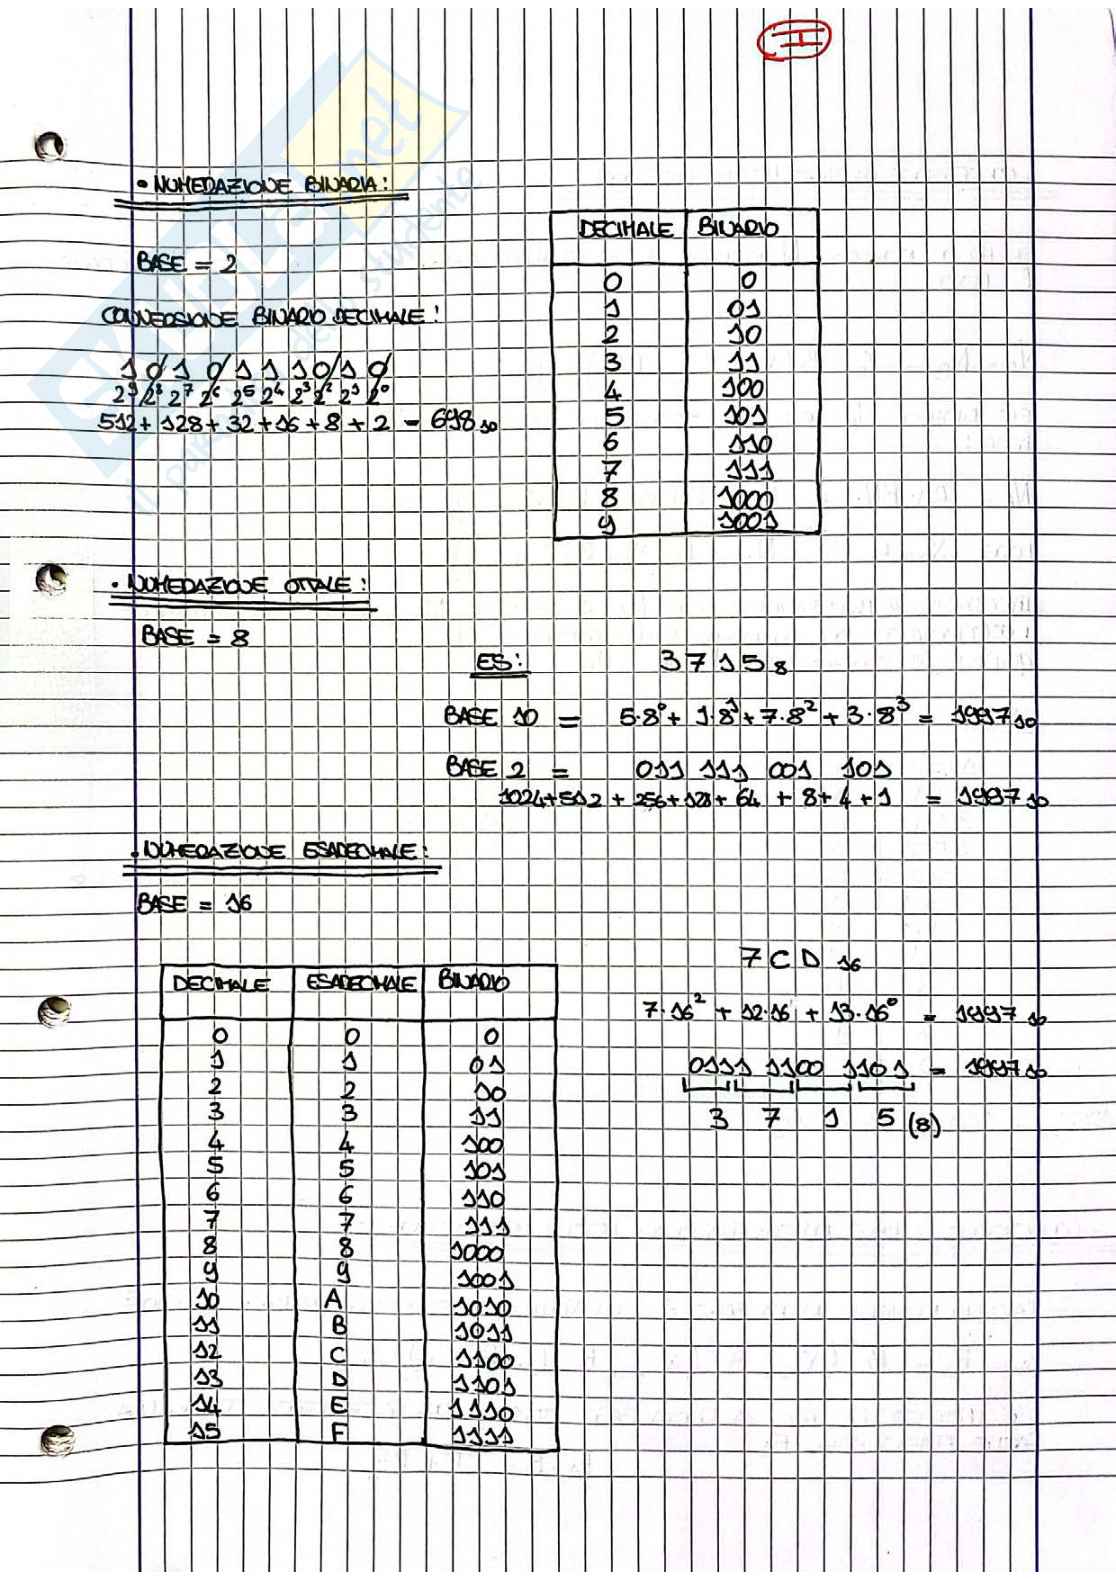 I
• NUMERAZIONE BINARIA:
BASE = 2
CONVERSIONE BINARIO DECIMALE:
1 0 1 0 1 1 1 0 1 0
2⁹ 2⁸ 2⁷ 2⁶ 2⁵ 2⁴ 2³ 2² 2¹ 2⁰
512 + 128 + 32 + 16 + 8 + 2 = 698 10
DECIMALE BINARIO
0 0
1 01
2 10
3 11
4 100
5 101
6 110
7 111
8 1000
9 1001
• NUMERAZIONE OTTALE:
BASE = 8
ES: 3715 8
BASE 10 = 5·8⁰ + 1·8¹ + 7·8² + 3·8³ = 1997 10
BASE 2 = 011 111 001 101
1024+512 + 256+128+ 64 + 8+ 4 +1 = 1997 10
• NUMERAZIONE ESADECIMALE:
BASE = 16
DECIMALE ESADECIMALE BINARIO
0 0 0
1 1 01
2 2 10
3 3 11
4 4 100
5 5 101
6 6 110
7 7 111
8 8 1000
9 9 1001
10 A 1010
11 B 1011
12 C 1100
13 D 1101
14 E 1110
15 F 1111
7CD 16
7·16² + 12·16 + 13·16⁰ = 1997 10
0111 1100 1101 = 1997 10
3 7 1 5 (8)